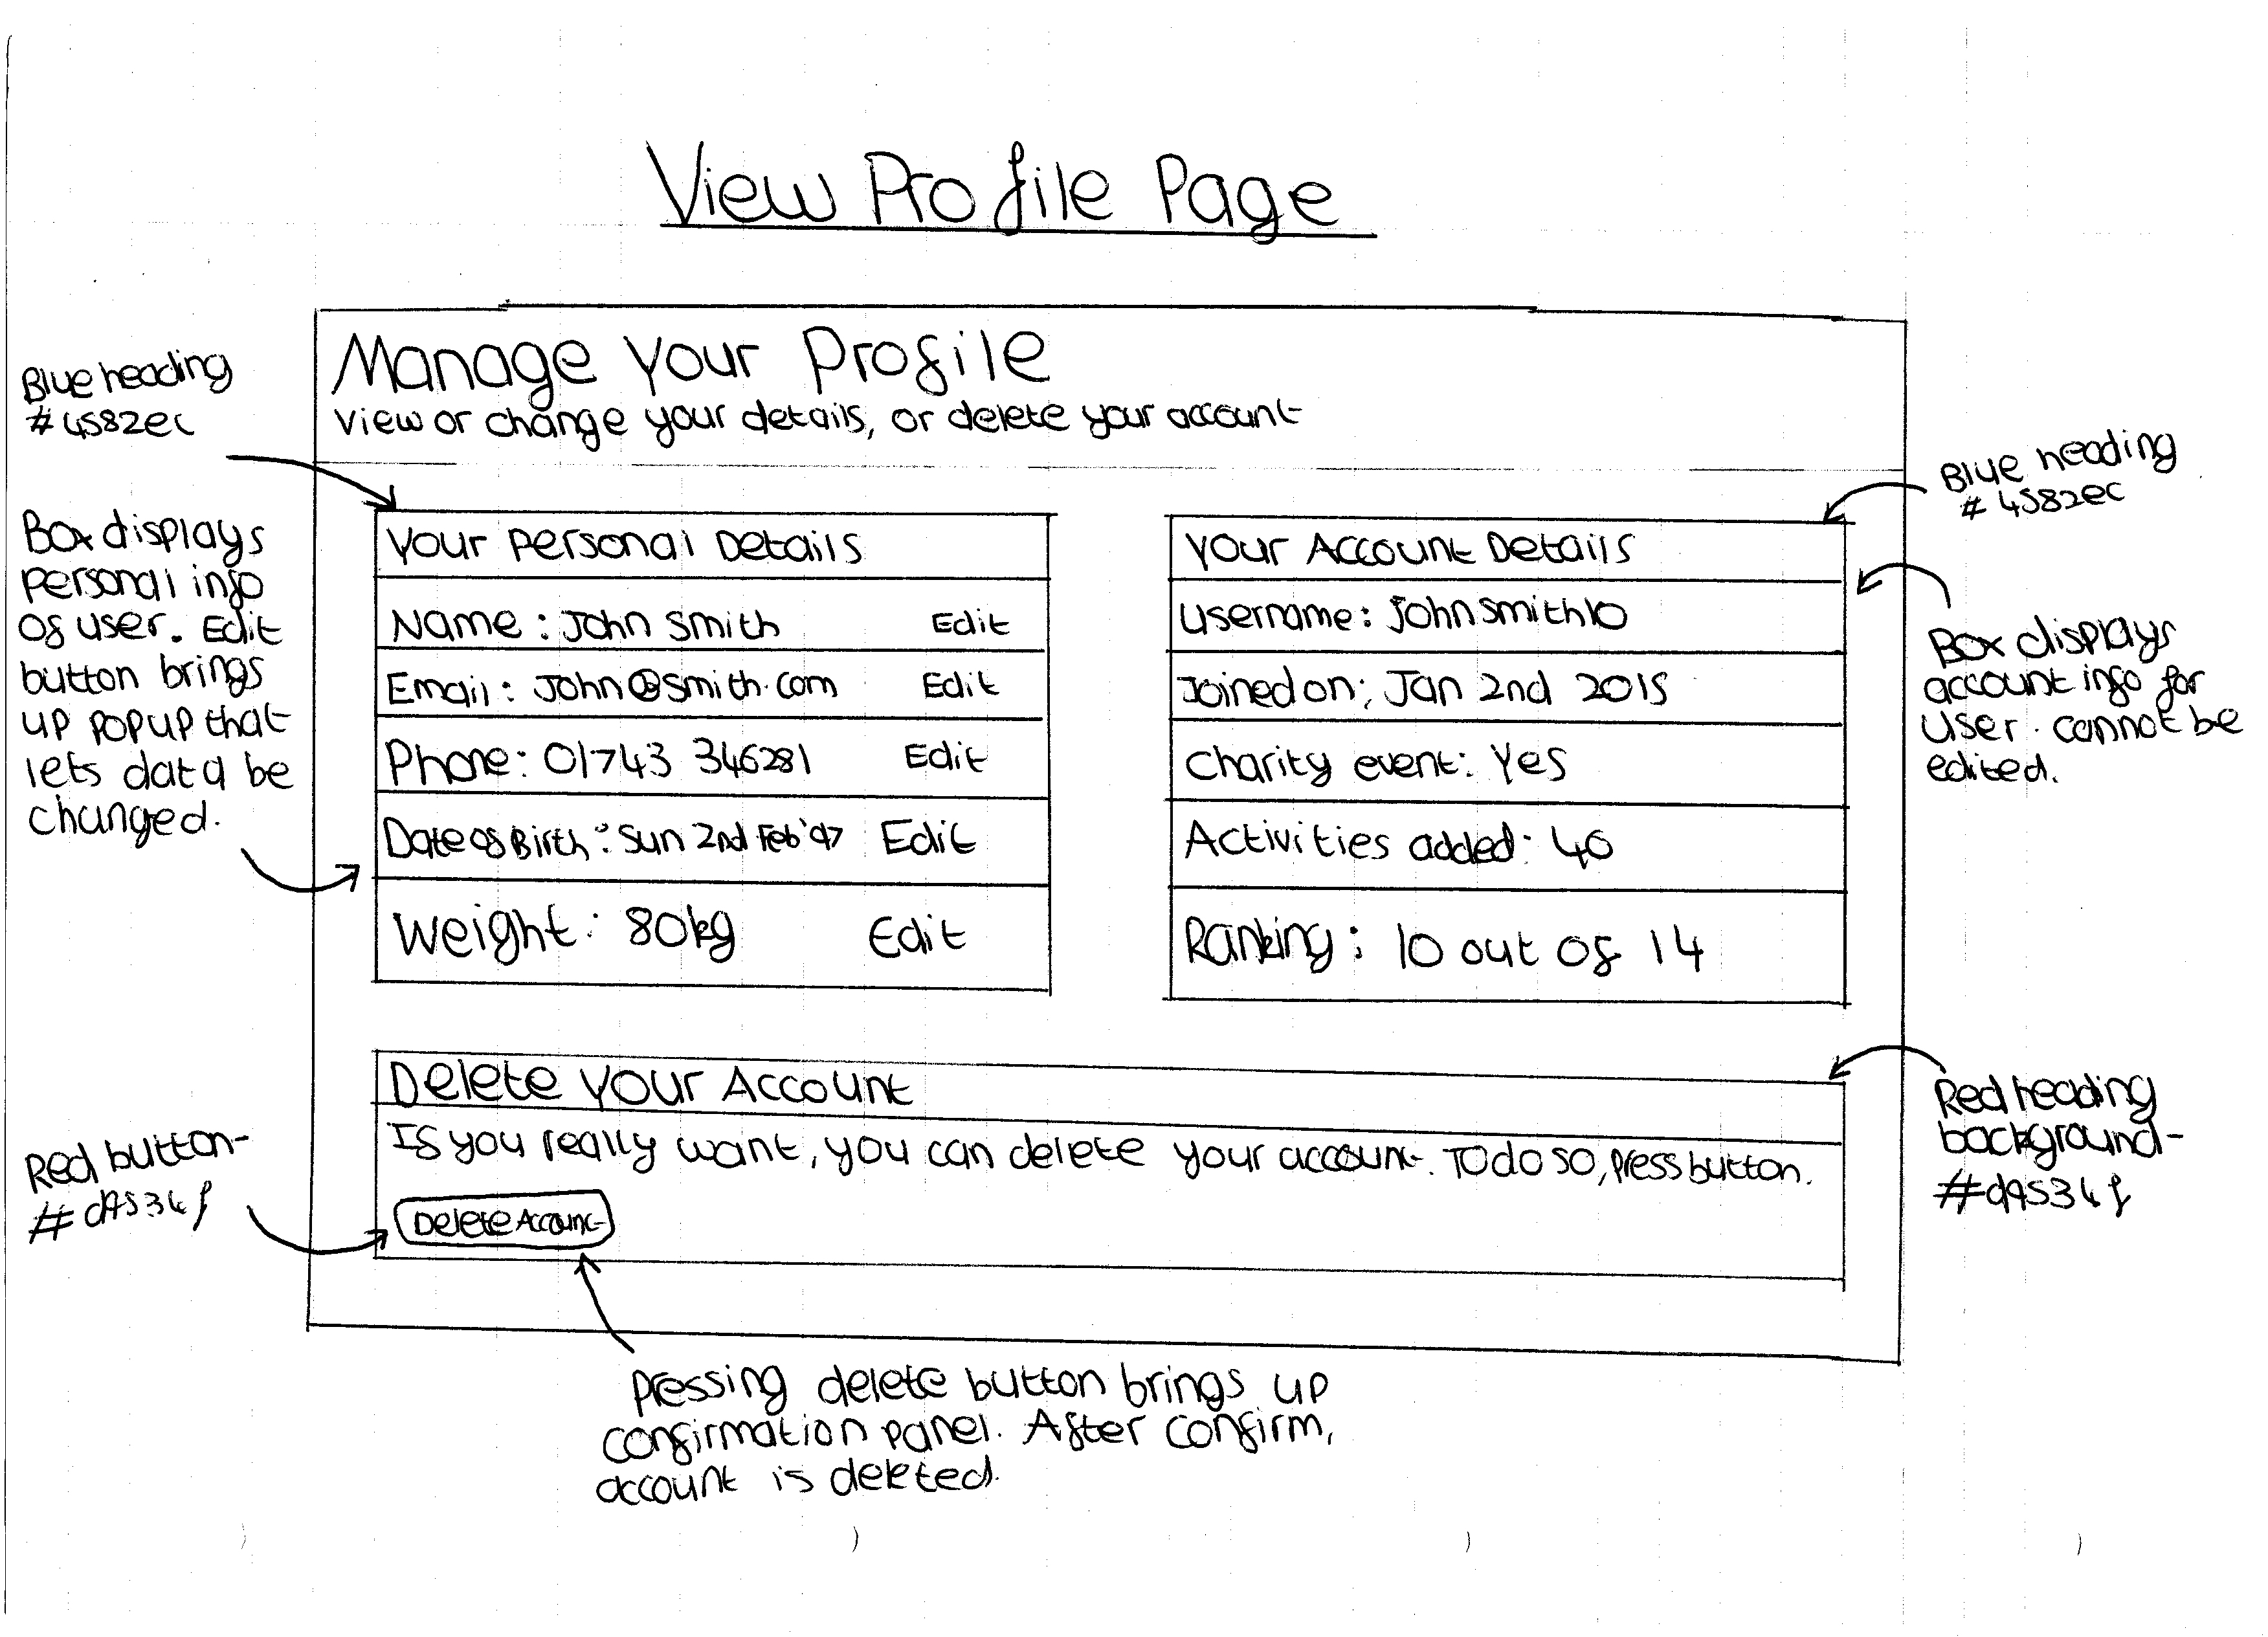 View Profile Page
Manage Your Profile
View or change your details, or delete your account
Blue heading
#4582ec
Box displays
personal info
of user. Edit
button brings
up popup that
lets data be
changed.
Your Personal Details
Name: John Smith Edit
Email: John@smith.com Edit
Phone: 01743 346281 Edit
Date of Birth: Sun 2nd Feb '97 Edit
Weight: 80kg Edit
Your Account Details
Username: johnsmith10
Joined on: Jan 2nd 2015
Charity event: Yes
Activities added: 40
Ranking: 10 out of 14
Blue heading
#4582ec
Box displays
account info for
user. cannot be
edited.
Delete Your Account
If you really want, you can delete your account. To do so, press button.
Delete Account
Red button-
#d9534f
Red heading
background-
#d9534f
Pressing delete button brings up
confirmation panel. After confirm,
account is deleted.